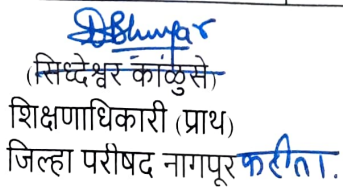 (सिध्देश्वर काळुसे)
शिक्षणाधिकारी (प्राथ)
जिल्हा परीषद नागपूर करीता.